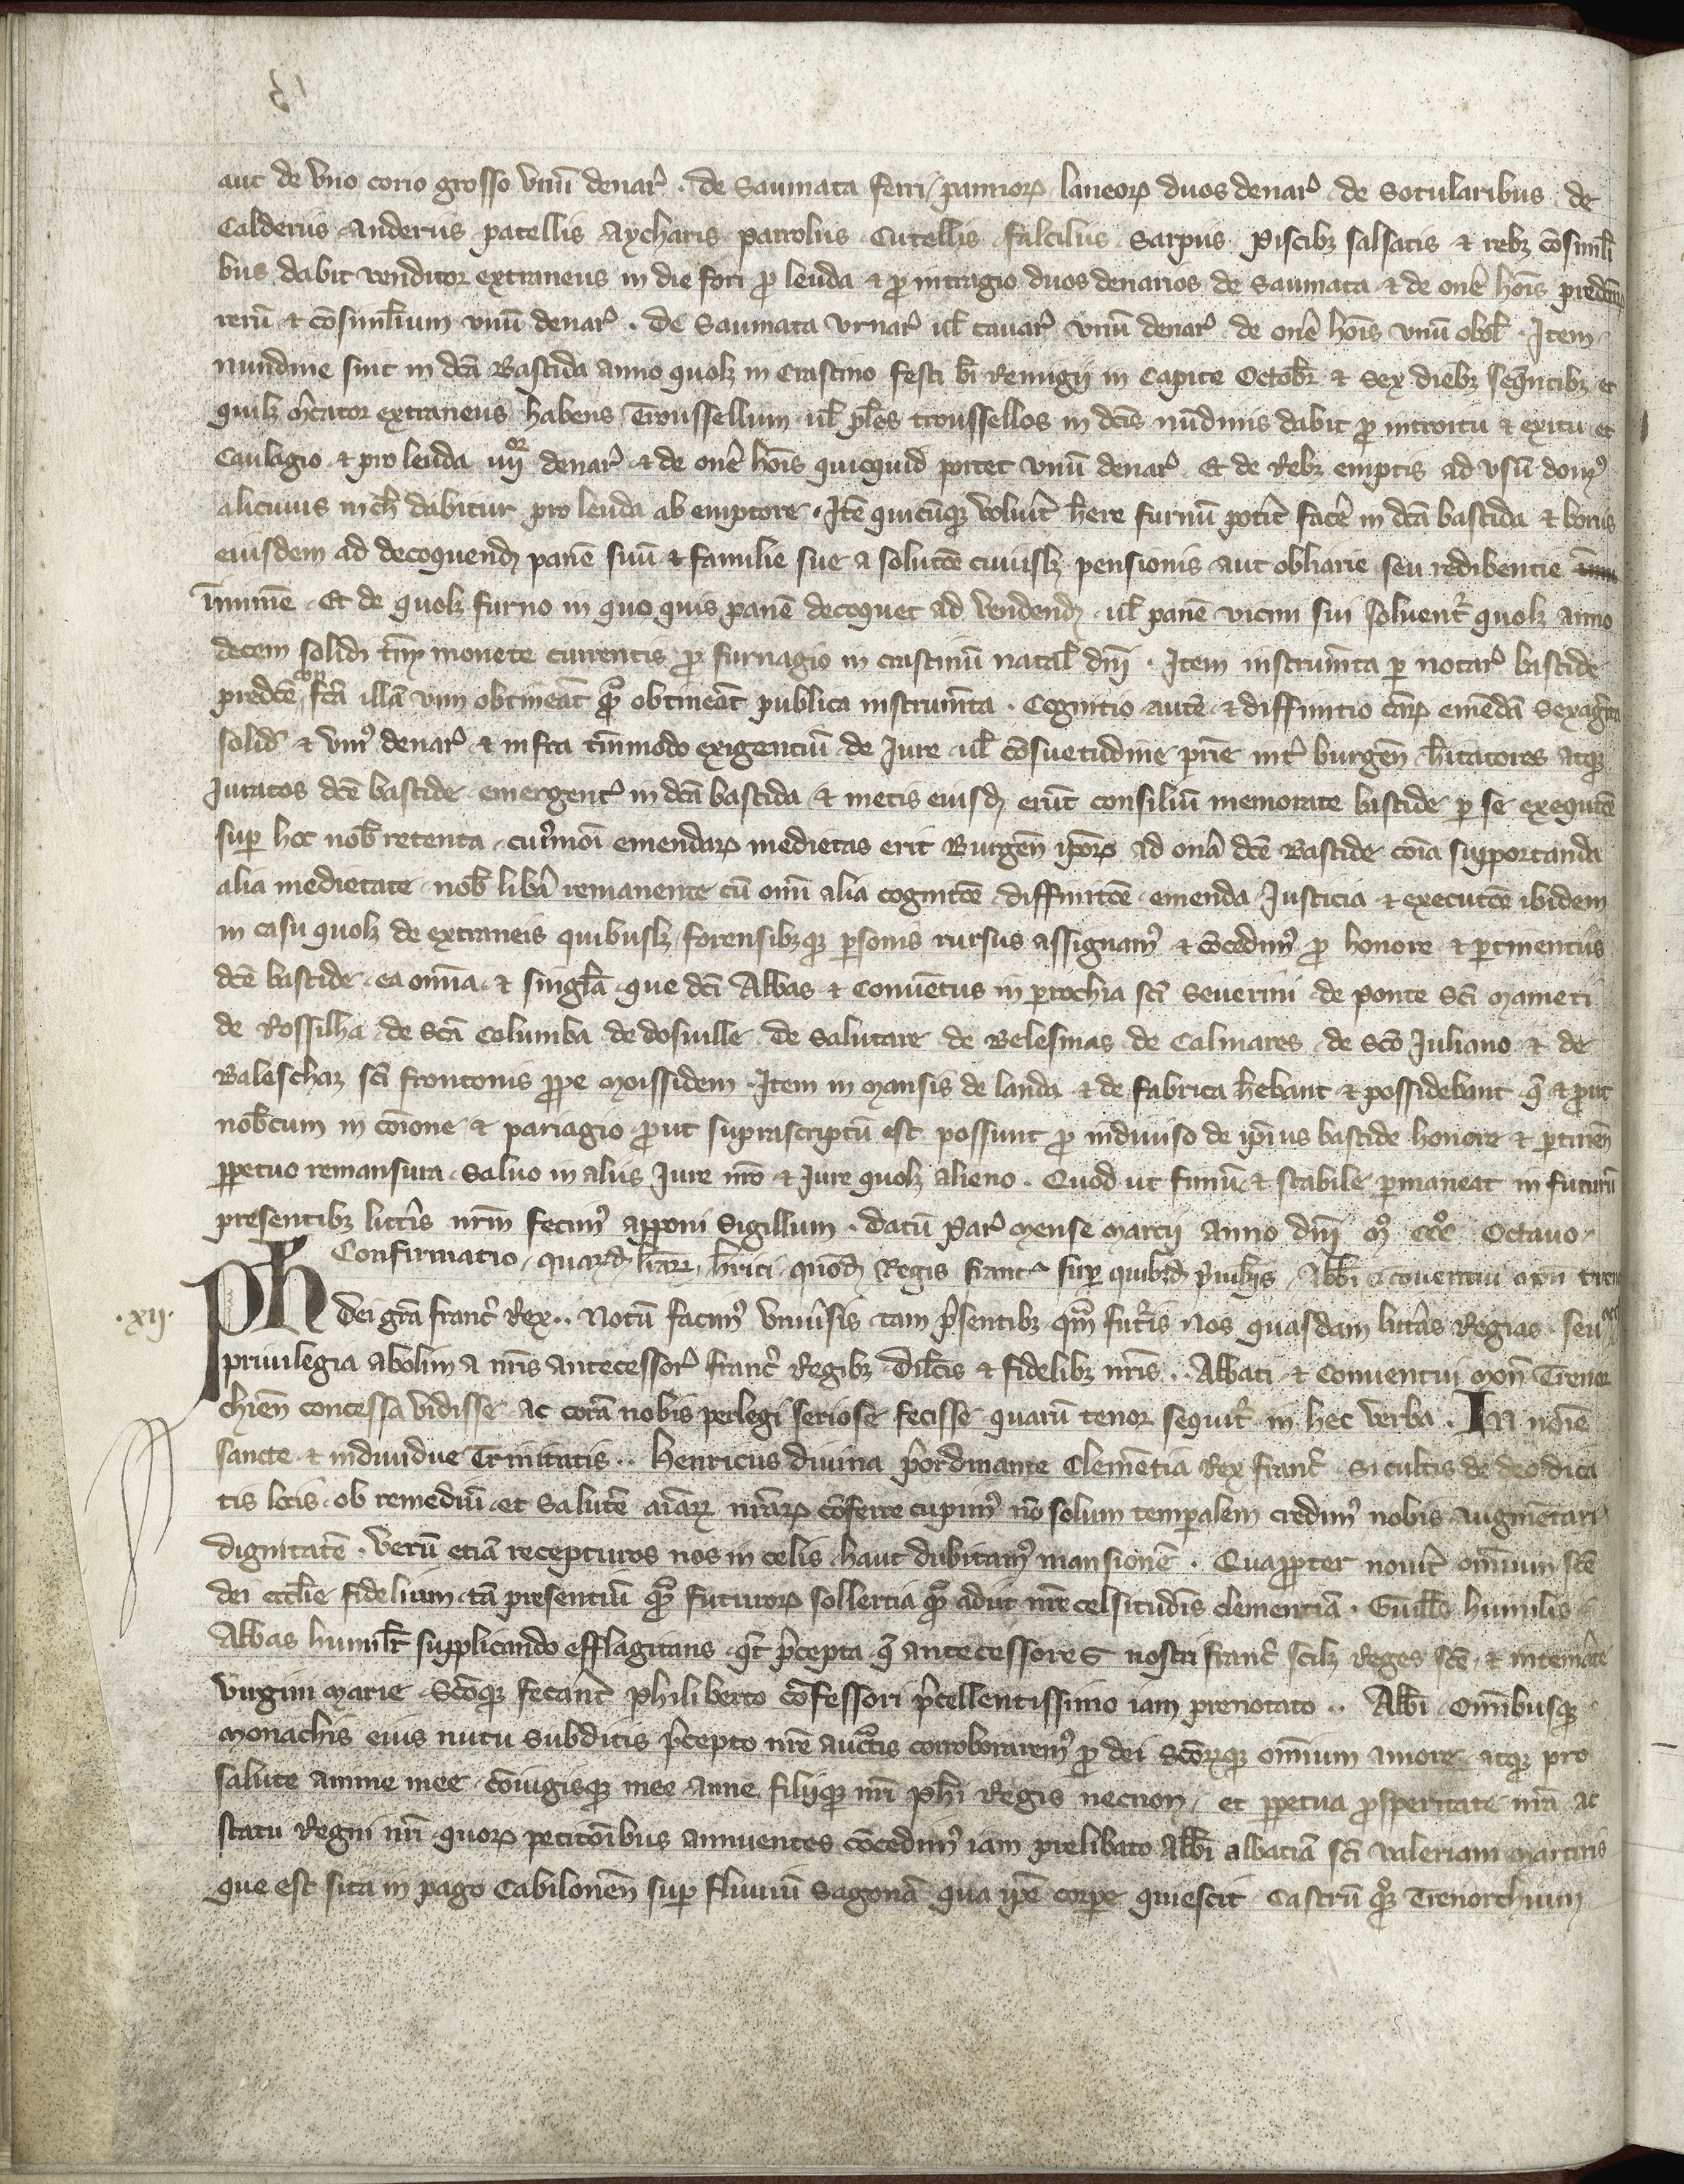 aut de vno corio grosso vnū denar̄ . de Saumata ferri / pannoꝝ laneoꝝ duos denar̄ de Sotularibus de
Calderiis Anderiis patellis Aycharis parrolus Cutellis falcilus Sarpus piscibꝫ salsatis ⁊ rebꝫ cōsimili
bus dabit venditor extraneus in die fori ꝓ leuda ⁊ ꝓ intragio duos denarios de Saumata ⁊ de on̄e hōis
rerū ⁊ cōsimilium vnū denar̄ . De Saumata vrnar̄ ul̄ cauar̄ vnū denar̄ de on̄e hōis vnū obol̄ . Item
nundine sint in dc̄a Bastida anno quolꝫ in Crastino festi bī Remigij in Capite Octobr̄ ⁊ Sex diebꝫ seq̄ntibꝫ et
quilꝫ m̄cator extraneus habens Troussellum ul̄ pl̄es troussellos in dc̄is nūdinis dabit ꝓ introitu ⁊ exitu et
Caulagio ⁊ pro leuda iiij^or denar̄ ⁊ de on̄e hōis quicquid portet vnū denar̄ Et de Rebꝫ emptis ad vsū domꝰ
alicuius nich̄ dabitur pro leuda ab emptore . Itē quicūqꝫ voluīt h̄ere furnū potīt fac̄e in dc̄a bastida ⁊ honis
eiusdem ad decoquendꝫ panē suū ⁊ familie sue a solutōe cuiuslꝫ pensionis aut obliarie seu redibentie
īmunē . Et de quolꝫ furno in quo quis panē decoquet ad vendendꝫ ul̄ panē vicini sui soluent̄ quolꝫ anno
decem solidi monete currentis ꝓ furnagio in crastinū natal̄ dn̄i . Item instrumīta per notar̄ bastide
predcē fc̄a illā vim obtineāt ꝙ̄ obtineāt publica instrumīta . Cognitio autē ⁊ diffinitio eāꝝ emēdā Sexagīta
solid̄ ⁊ vniꝰ denar̄ ⁊ infra tn̄modo exigentiū de Iure ul̄ cōsuetudine pr̄ie int̄ burgen̄ h̄itatores atqꝫ
Iuratos dcē bastide emergent̄ in dc̄a bastida ⁊ metis eiusdꝫ erūt consiliū memorate bastide per se exequtōe
sup̄ hec nob̄ retenta cuiꝰmōi emendaꝝ medietas erit Burgēn ip̄oꝝ ad on̄a dcē Bastide cōia supportanda
alia medietate nob̄ lib̄a remanente cū omī alia cognitōe diffinitōe emenda Iusticia ⁊ executōe ibidem
in casu quolꝫ de extraneis quibuslꝫ forensibꝫqꝫ p̄sonis rursus assignamꝰ ⁊ cōcedimꝰ ꝓ honore ⁊ p̄tinentiis
dcē bastide ea omīa ⁊ singl̄a que dc̄i Abbas ⁊ Conuētus in parochia sc̄i Seuerini de ponte Sc̄i Mameti
de Rossilha de Sc̄a Columba de dosuille de Salutare de Belesmas de Calmares de Sc̄o Iuliano ⁊ de
Baleschaz sc̄i frontonis ꝓpe Moissidem . Item in Mansis de landa ⁊ de fabrica h̄ebant ⁊ possidebant q̄ ⁊ ꝓut
nob̄cum in cōione ⁊ pariagio ꝓut suprascriptū est possunt ꝓ indiuiso de ip̄ius bastide honore ⁊ p̄tinēn
ꝑpetuo remansura Saluo in aliis Iure nr̄o ⁊ Iure quolꝫ alieno . Quod ut firmū ⁊ stabile p̄maneat in futurū
presentibꝫ litt̄is nr̄m fecimꝰ apponi Sigillum . datū par̄ Mense Marcij Anno dn̄i Mꝰ ccc̊ Octauo .
Confirmatio quarūdꝫ lr̄arꝝ h̄nrici quōdꝫ Regis franc̄ sup̄ quibꝫdꝫ p̄uilegijs Abb̄i ⁊ conuentui
.xij. Ph̄ Dei gr̄a franc̄ Rex .. Notū facimꝰ vniūsis tam p̄sentibꝫ qm̄ fut̄is Nos quasdam litt̄as Regias seu
priuilegia ab olim a nr̄is antecessor̄ franc̄ Regibꝫ dil̄cis ⁊ fidelibꝫ nr̄is .. Abbati ⁊ Conuentui Mon̄ Trenor
chien̄ concessa vidisse ac corā nobis perlegi seriose fecisse quarū tenor sequit̄ in hec verba . In nōie
sancte ⁊ indiuidue Trinitatis .. Henricus diuina p̄ordinante Clemētia Rex franc̄ . Si cultis de deo dica
tis locis ob remediū et Salutē aīarꝝ nr̄aꝝ cōferre cupimꝰ nō solum temporalem credimꝰ nobis augmētari
dignitatē . Verū etiā recepturos nos in celis haut dubitamꝰ mansionē . Quapropter nouīt omīum sc̄e
dei eccl̄ie fidelium tā presentiū ꝙ̄ futuroꝝ sollertia adiit nr̄e celsitudīs clementiā . Guill̄s humilis
Abbas humilīt supplicando efflagitans q̄t p̄cepta q̄ antecessores nostri franc̄ scilꝫ Reges sc̄e ⁊ intem̄ate
virgini Marie Sc̄oqꝫ fecant̄ Philiberto cōfessori p̄cellentissimo iam prenotato .. Abb̄i Omībusqꝫ
Monachis eius nutu subditis p̄cepto nr̄e auctōis corroboraremꝰ ꝓ dei Sc̄oꝝqꝫ omīum amore atqꝫ pro
salute anime mee cōiugisqꝫ mee Anne filijqꝫ nr̄i Ph̄i Regis necnon et ꝑpetua ꝓsperitate nr̄a ac
statu Regni nr̄i quoꝝ petitōibus annuentes cōcedimꝰ iam prelibato Abb̄i abbatiā sc̄i Valeriani Martiris
que est sita in pago Cabilonen̄ sup̄ fluuiū Sagonā qua ip̄e corpe quiescit Castrū qꝫ Trenorchium